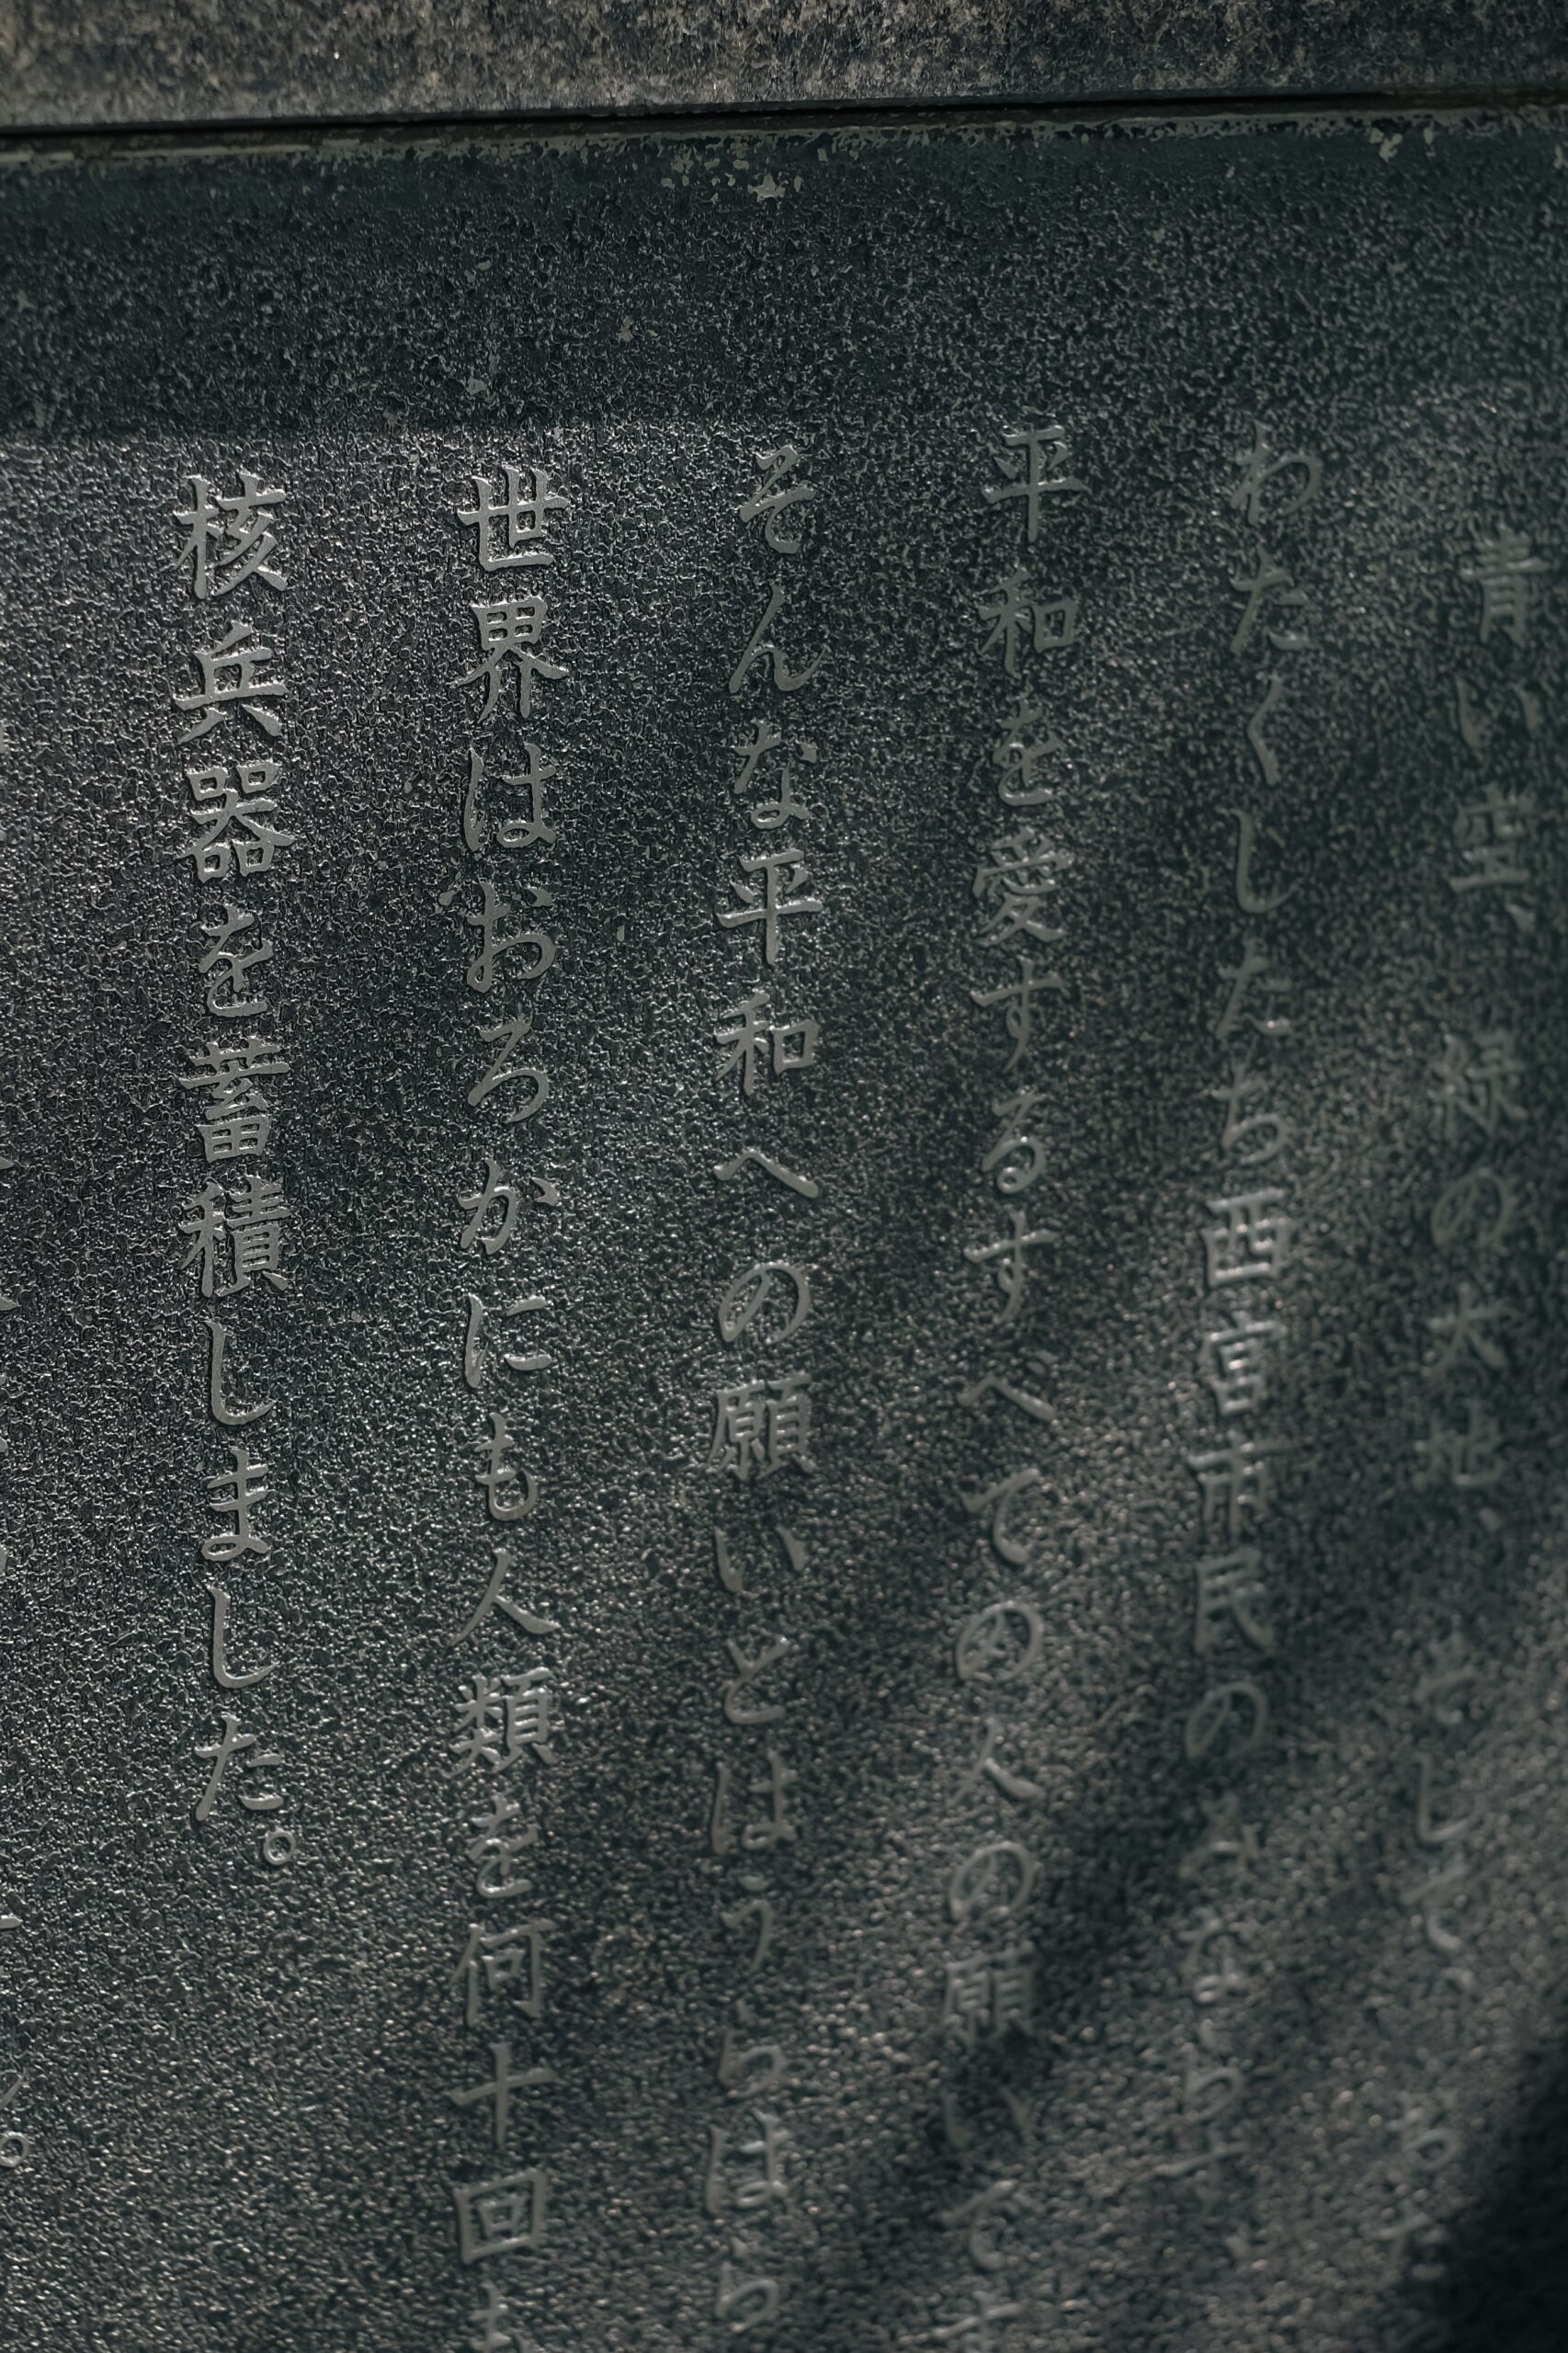 青い空、緑の大地、そして、
わたくしたち西宮市民のみならず、
平和を愛するすべての人の願いです
そんな平和への願いとはうらはら
世界はおろかにも人類を何十回も
核兵器を蓄積しました。